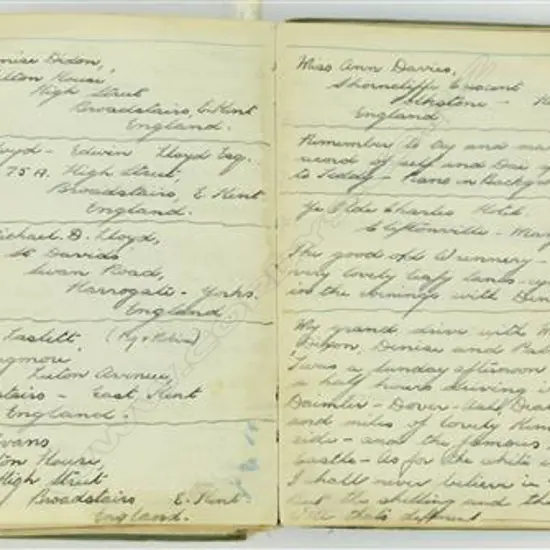 Denise Dixon,
Hilton House,
High Street
Broadstairs, E. Kent
England.
Lloyd - Edwin Lloyd Esq.
75 A. High Street,
Broadstairs, E. Kent
England.
Michael. D. Lloyd,
St Davids
Swan Road,
Harrogate - Yorks.
England
(Pg & Robin)
Avenue,
stairs - East Kent
England.
Evans
ton House,
High Street
Broadstairs E. Kent
England.
Miss Ann Davies,
Shorncliffe Crescent
olkstone -
England
Remember to try and
record of self and Dai
to Teddy - Piano in
Ye Olde Charles Hotel
Cliftonville -
The good old Wrennery -
very lovely leafy lanes -
in the evenings with
My grand drive with
Dixon, Denise and
Twas a Sunday afternoon
a half hours driving
Daimler - Dover -
and miles of lovely
side - and the famous
Castle - As for the white
I shall never believe in
But the shelling and th
that's different